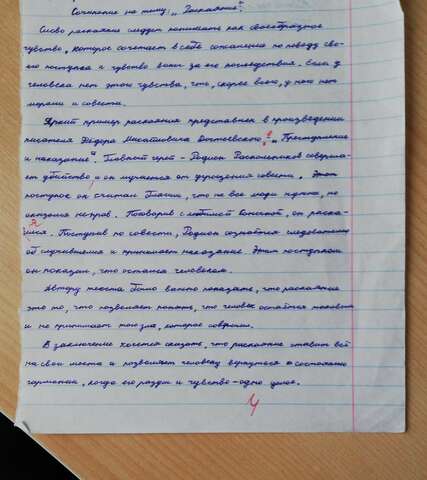 Сочинение на тему: "Раскаяние".
Слово раскаяние следует понимать как своеобразное
чувство, которое сочетает в себе сожаление по поводу сво-
его поступка и чувство вины за его последствия. Если у
человека нет этого чувства, то, скорее всего, у него нет
морали и совести.
Яркий пример раскаяния представлен в произведении
писателя Фёдора Михайловича Достоевского "Преступление
и наказание". Главный герой - Родион Раскольников соверша-
ет убийство и он мучается от угрызения совести. Этот
поступок он считал благим, что не все люди нужны, но
оказался неправ. Поговорив с любимой Сонечкой, он раска-
ялся. Поступив по совести, Родион сознаётся следователю
об случившемся и принимает наказание. Этим поступком
он показал, что остался человеком.
Автору текста было важно показать, что раскаяние
это то, что позволяет понять, что человек остаётся человеком
и не принимает того зла, которое совершил.
В заключение хочется сказать, что раскаяние ставит всё
на свои места и позволяет человеку вернуться в состояние
гармонии, когда его разум и чувство - одно целое.
4